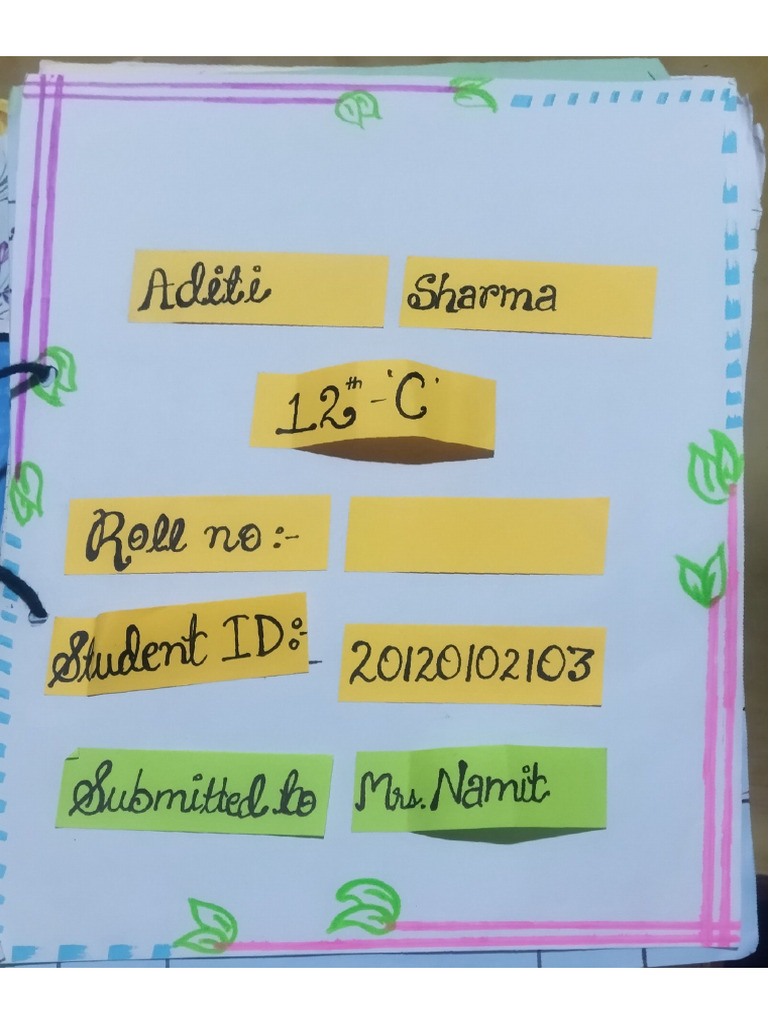 Aditi Sharma
12th - 'C'
Roll no :-
Student ID:- 20120102103
Submitted to Mrs. Namit